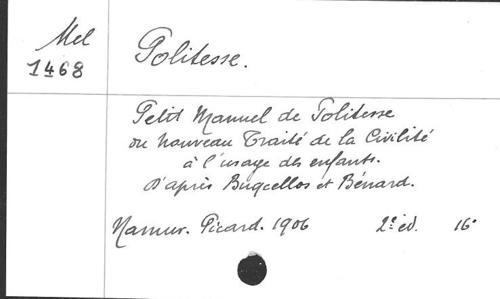 Mel
1468
Politesse.
Petit Manuel de Politesse
ou nouveau Traité de la Civilité
à l'usage des enfants.
D'après Bugcellos et Bénard.
Namur. Picard. 1906 2e éd. 16°